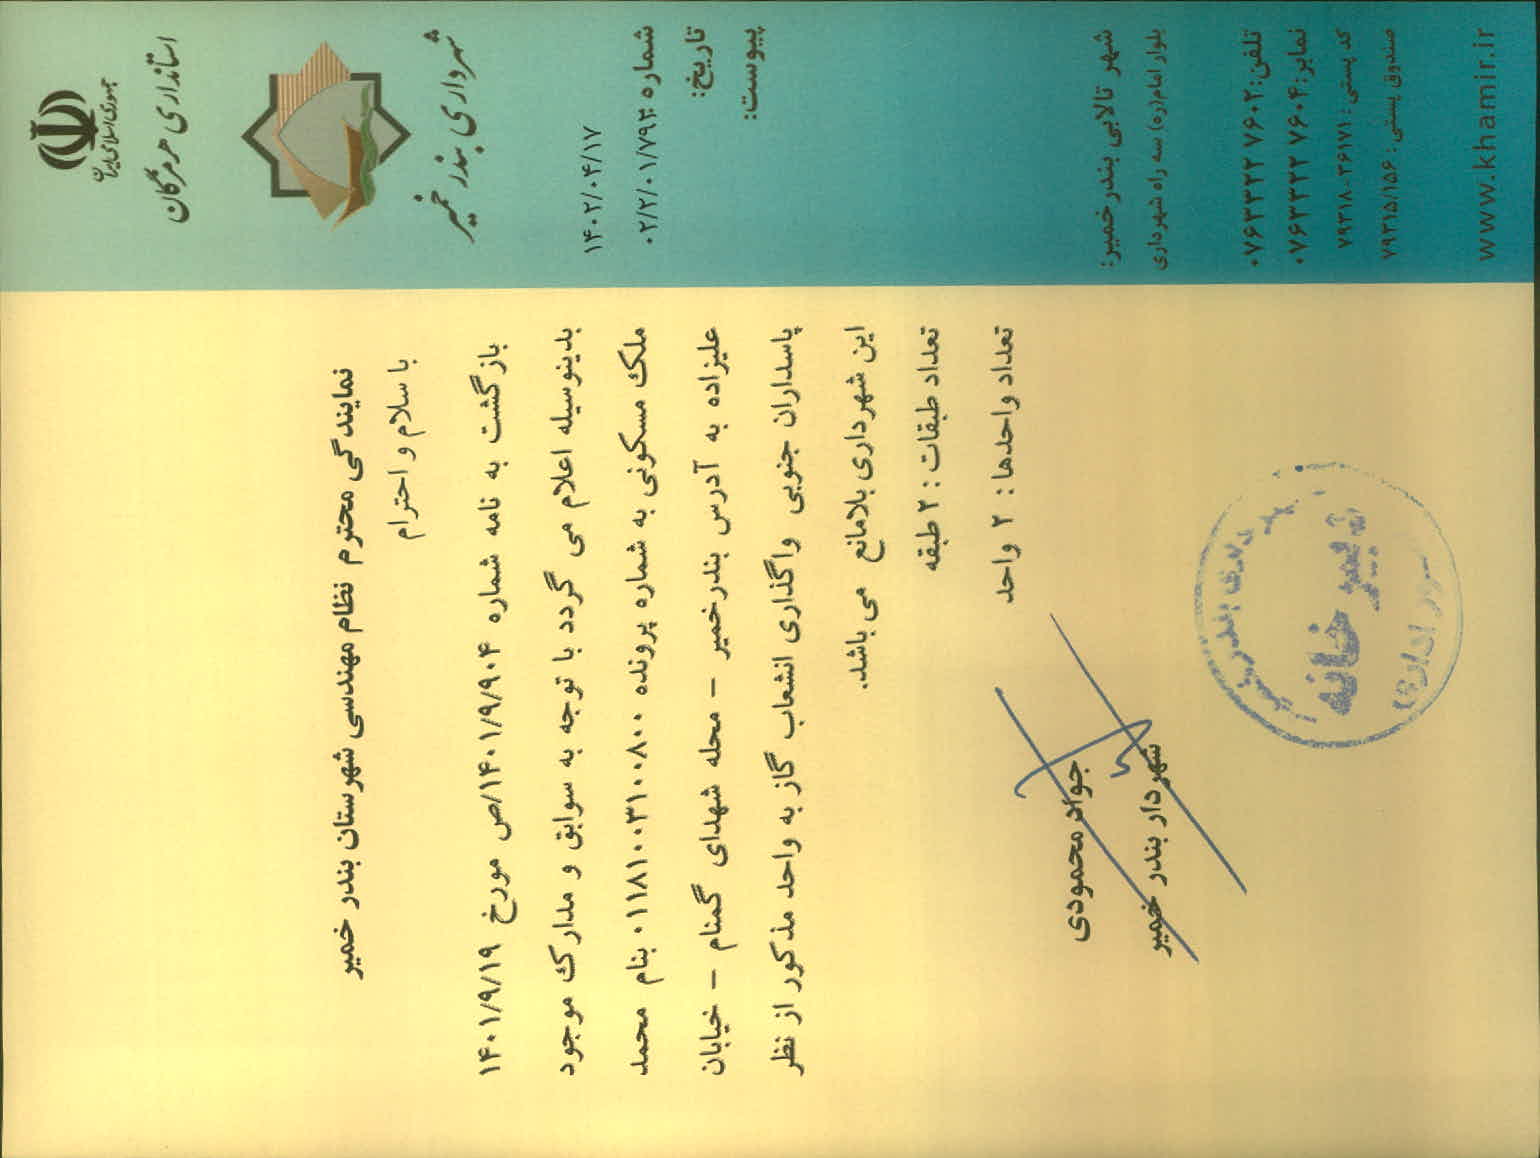 جمهوری اسلامی ایران
استانداری هرمزگان
شهرداری بندر خمیر
۱۴۰۲/۰۴/۱۷
شماره: ۰۲/۲/۰۱/۷۹۲
تاریخ:
پیوست:
نمایندگی محترم نظام مهندسی شهرستان بندر خمیر
با سلام و احترام
بازگشت به نامه شماره ۱۴۰۱/۹/۹۰۴/ص مورخ ۱۴۰۱/۹/۱۹
بدینوسیله اعلام می گردد با توجه به سوابق و مدارک موجود
ملک مسکونی به شماره پرونده ۰۱۱۸۱۰۰۳۱۰۰۸۰۰ بنام محمد
علیزاده به آدرس بندرخمیر - محله شهدای گمنام - خیابان
پاسداران جنوبی واگذاری انشعاب گاز به واحد مذکور از نظر
این شهرداری بلامانع می باشد.
تعداد طبقات : ۲ طبقه
تعداد واحدها : ۲ واحد
جواد محمودی
شهردار بندر خمیر
دبیرخانه
شهر تالابی بندرخمیر:
بلوار امام(ره) سه راه شهرداری
تلفن: ۰۷۶۳۳۲۲ ۷۶۰۲
نمابر: ۰۷۶۳۳۲۲ ۷۶۰۴
کد پستی: ۷۹۳۱۸-۳۶۱۷۱
صندوق پستی: ۷۹۳۱۵/۱۵۶
www.khamir.ir